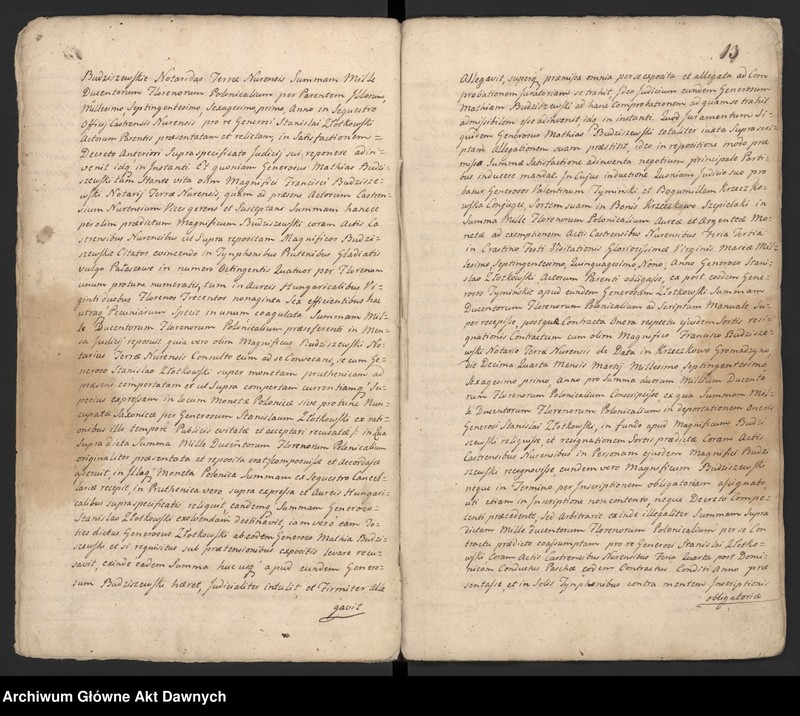 Budziszewskie Notaridas Terræ Nurensis Summam Mille
Ducentorum Florenorum Polonicalium per Parentem Illorum,
Millesimo, Septingentesimo, Sexagesimo, primo Anno in Sequestro
Officij Castrensis Nurensis pro re Generosi Stanislai Złotkowski
Actorum Parentis præsentatam et relictam, in Satisfactionem =
Decreto Anteriori Supra specificato Judicij sui, reponere adin=
venit idq in Instanti. Et quoniam Generosus Mathias Budzi=
szewski tam Stante vita olim Magnifici Francisci Budzisze=
wski Notarij Terræ Nurensis, quam ad præsens Actorum Castren=
sium Nurensium Vices gerens et Susceptans Summam hancce
per olim prædictum Magnificum Budziszewski coram Actis Ca=
strensibus Nurensibus ut Supra repositam Magnificos Budzi=
szewskie Citatos evincendo in Tynphonibus Prutenibus Gladiatis
vulgo Pałaszowe in numero Octingentis Quatuor per Florenum
unum protunc numeratis, tum in Aureis Hungaricalibus Vi=
ginti duobus Florenos Trecentos nonaginta Sex efficientibus hac
utraq Pecuniarum Specie in unum coagulata Summam Mil=
le Ducentorum Florenorum Polonicalium præseferenti in Men=
sa Judicij reposuit quia vero olim Magnificus Budziszewski No=
tarius Terræ Nurensis Consulto eum ad se Convocans, se cum Ge=
neroso Stanislao Złotkowski super monetam pruthenicam ad
præsens comportatam et ut Supra compertam currentiamq Su=
perius expressam in locum Monetæ Polonicæ sive protunc Nun=
cupatæ Saxonicæ per Generosum Stanislaum Złotkowski ex rati=
onibus illo tempore Publicis evitatæ et acceptari recusatæ /: in qua
Supra dicta Summa Mille Ducentorum Florenorum Polonicalium
originaliter præsentata et reposita erat :/ composuisse et accordasse
asseruit, in illaq Moneta Polonica Summam ex Sequestro Cancel=
lariæ recepit, in Pruthenica vero supra expressa et Aureis Hungari=
calibus supra specificatis reliquit eandemq Summam Generoso
Stanislao Złotkowski exolvendam destinavit, iam vero eam To=
ties dictus Generosus Złotkowski ab eodem Generoso Mathia Budzi=
szewski et si requisitus sub prætensionibus expositis levare recu=
savit, exinde eadem Summa huc usq apud eundem Genero=
sum Budziszewski hæret, Judicialiter intulit et Firmiter alle
gavit
13
Allegavit, superq præmissa omnia per se exposita et allegata ad Com
probationem Juratoriam se trahit, Ideo Judicium eundem Generosum
Mathiam Budziszewski ad hanc Comprobationem ad quam se trahit
admissibilem esse adinvenit idq in instanti. Quod Juramentum Si=
quidem Generosus Mathias Budziszewski totaliter iuxta Suprascri=
ptam Allegationem suam præstitit, ideo in repositione modo præ=
missæ Summæ Satisfactione adinventa negotium principale Parti=
bus inducere mandat. In Cujus inductione Quoniam Judicio suo pro
batur Generosos Valentinum Tyminski et Bogumillam Krzeczko=
wska Conjuges, Sortem suam in Bonis Krzeczkowo Szepielaki in
Summa Mille Florenorum Polonicalium Aureæ et Argenteæ Mo=
netæ ad exemptionem Actis Castrensibus Nurensibus Feria Tertia
in Crastino Festi Visitationis Gloriosissimæ Virginis Mariæ Mil=
lesimo, Septingentesimo, Quinquagesimo Nono, Anno Generoso Stanis=
slao Złotkowski Actorum Parenti obligasse, ex post eosdem Gene=
rosos Tyminskie apud eundem Generosum Złotkowski Summam
Ducentorum Florenorum Polonicalium ad Scriptum Manuale Su=
per recepisse, postquæ Contracta Onera respectu ejusdem Sortis resi=
gnationis Contractum cum olim Magnifico Francisco Budzisze=
wski Notario Terræ Nurensis de Data in Krzeczkowo Gromadzyno
die Decima Quarta Mensis Martij Millesimo Septingentesimo
Sexagesimo primo Anno pro Summa duorum Millium Ducento
rum Florenorum Polonicalium Conscripsisse, ex qua Summam Mil=
le Ducentorum Florenorum Polonicalium in deportationem Oneris
Generosi Stanislai Złotkowski, in fundo apud Magnificum Budzi
szewski reliquisse, et resignationem Sortis prædictæ Coram Actis
Castrensibus Nurensibus in Personam ejusdem Magnifici Budzi
szewski recognovisse eundem vero Magnificum Budziszewski
neque in Termino per Inscriptionem obligatoriam assignato,
uti etiam in Inscriptione non contento, neque Decreto Compe=
tenti præcedente, Sed Arbitrarie exinde illegaliter Summam Supra
dictam Mille Ducentorum Florenorum Polonicalium per se Con
tractu prædicto coassumptam pro re Generosi Stanislai Złotko=
wski Coram Actis Castrensibus Nurensibus Feria Quarta post Domi=
nicam Conductus Paschæ eodem Contractus Conditi Anno præ
sentasse, et in Solis Tynphonibus contra mentem Inscriptionis
obligatoriæ
Archiwum Główne Akt Dawnych